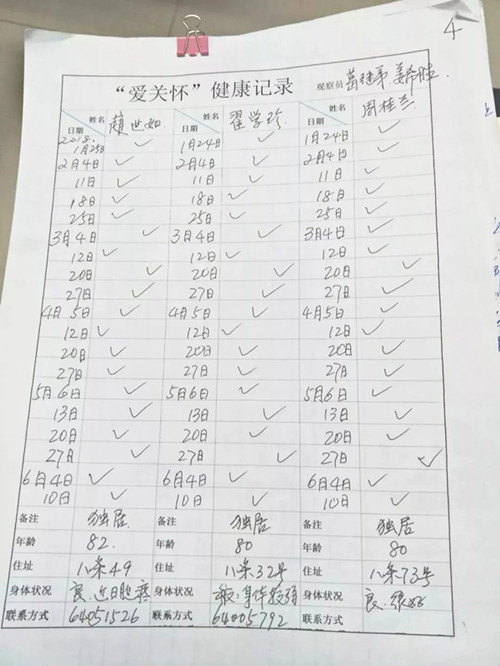 4
“爱关怀”健康记录 观察员 葛桂弟 姜希胜
姓名 日期 赵世如 姓名 日期 翟学珍 姓名 日期 周桂兰
2018.1月25日 ✓ 1月24日 ✓ 1月24日 ✓
2月4日 ✓ 2月4日 ✓ 2月4日 ✓
11日 ✓ 11日 ✓ 11日 ✓
18日 ✓ 18日 ✓ 18日 ✓
25日 ✓ 25日 ✓ 25日 ✓
3月4日 ✓ 3月4日 ✓ 3月4日 ✓
12日 ✓ 12日 ✓ 12日 ✓
20日 ✓ 20日 ✓ 20日 ✓
27日 ✓ 27日 ✓ 27日 ✓
4月5日 ✓ 4月5日 ✓ 4月5日 ✓
12日 ✓ 12日 ✓ 12日 ✓
20日 ✓ 20日 ✓ 20日 ✓
27日 ✓ 27日 ✓ 27日 ✓
5月6日 ✓ 5月6日 ✓ 5月6日 ✓
13日 ✓ 13日 ✓ 13日 ✓
20日 ✓ 20日 ✓ 20日 ✓
27日 ✓ 27日 ✓ 27日 ✓
6月4日 ✓ 6月4日 ✓ 6月4日 ✓
10日 ✓ 10日 ✓ 10日 ✓
备注 独居 备注 独居 备注 独居
年龄 82. 年龄 80 年龄 80
住址 八条49 住址 八条32号 住址 八条73号
身体状况 良.近日腿疼 身体状况 身体状况 良.很好
联系方式 64051526 联系方式 64005792 联系方式